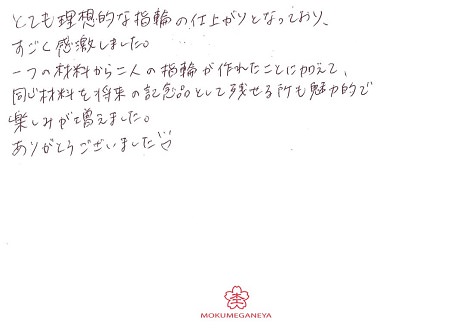 とても理想的な指輪の仕上がりとなっており、
すごく感激しました。
一つの材料から二人の指輪が作れたことに加えて、
同じ材料を将来の記念品として残せる所も魅力的で
楽しみが増えました。
ありがとうございました
MOKUMEGANEYA